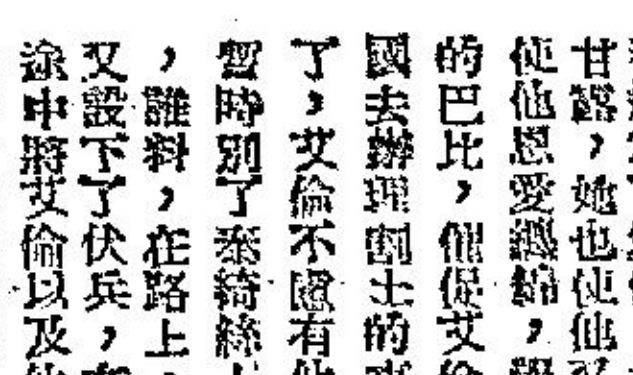 甘露，她也使他
使他恩愛纏綿，
的巴比，催促艾
國去辦理割土的
了，艾倫不慮有
暫時別了泰綺絲
，誰料，在路上
又設下了伏兵，
途中將艾倫以及